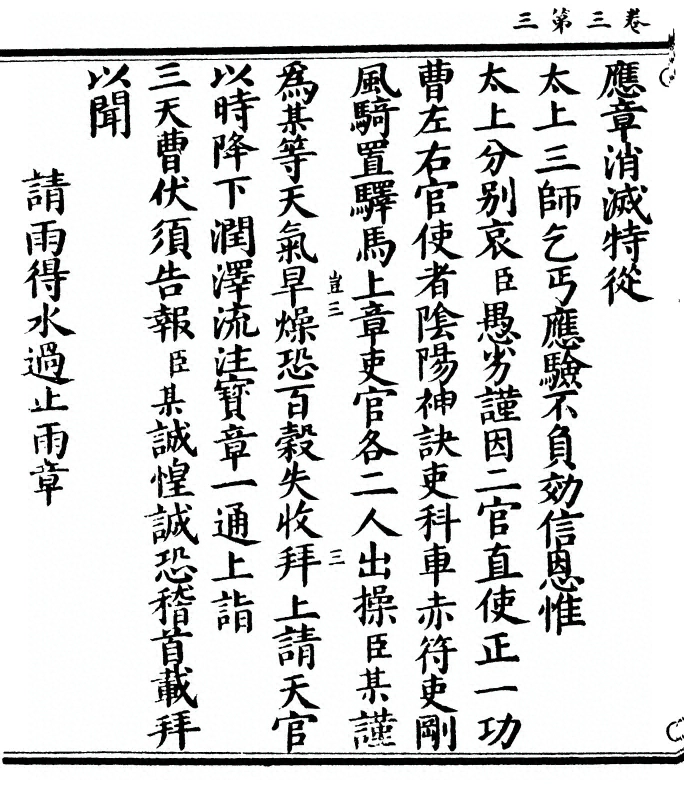 卷三第三
應章消滅特從
太上三師乞丐應驗不負効信恩惟
太上分别哀臣愚劣謹因二官直使正一功
曹左右官使者陰陽神訣吏科車赤符吏剛
風騎置驛馬上章吏官各二人出操臣某謹
豈三
三
爲某等天氣旱燥恐百穀失收拜上請天官
以時降下潤澤流注寳章一通上詣
三天曹伏須告報臣某誠惶誠恐稽首載拜
以聞
請雨得水過止雨章